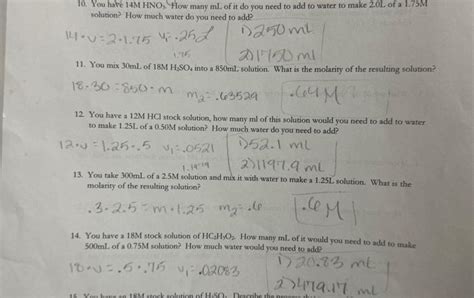 10. You have 14M HNO₃. How many mL of it do you need to add to water to make 2.0L of a 1.75M
solution? How much water do you need to add?
14·v=2·1.75 v₁=.25L 1) 250 mL
1.75 2) 1750 ml
11. You mix 30mL of 18M H₂SO₄ into a 850mL solution. What is the molarity of the resulting solution?
18·30=850·m m₂=.63529 .64M
12. You have a 12M HCl stock solution, how many ml of this solution would you need to add to water
to make 1.25L of a 0.50M solution? How much water do you need to add?
12·v=1.25·.5 v₁=.0521 1) 52.1 mL
2) 1197.9 mL
13. You take 300mL of a 2.5M solution and mix it with water to make a 1.25L solution. What is the
molarity of the resulting solution?
.3·2.5=m·1.25 m₂=.6 .6M
14. You have a 18M stock solution of HC₂H₃O₂. How many mL of it would you need to add to make
500mL of a 0.75M solution? How much water would you need to add?
18·v=.5·.75 v₁=.02083 1) 20.83 mL
2) 479.17 mL
15. You have an 18M stock solution of H₂SO₄. Describe the process